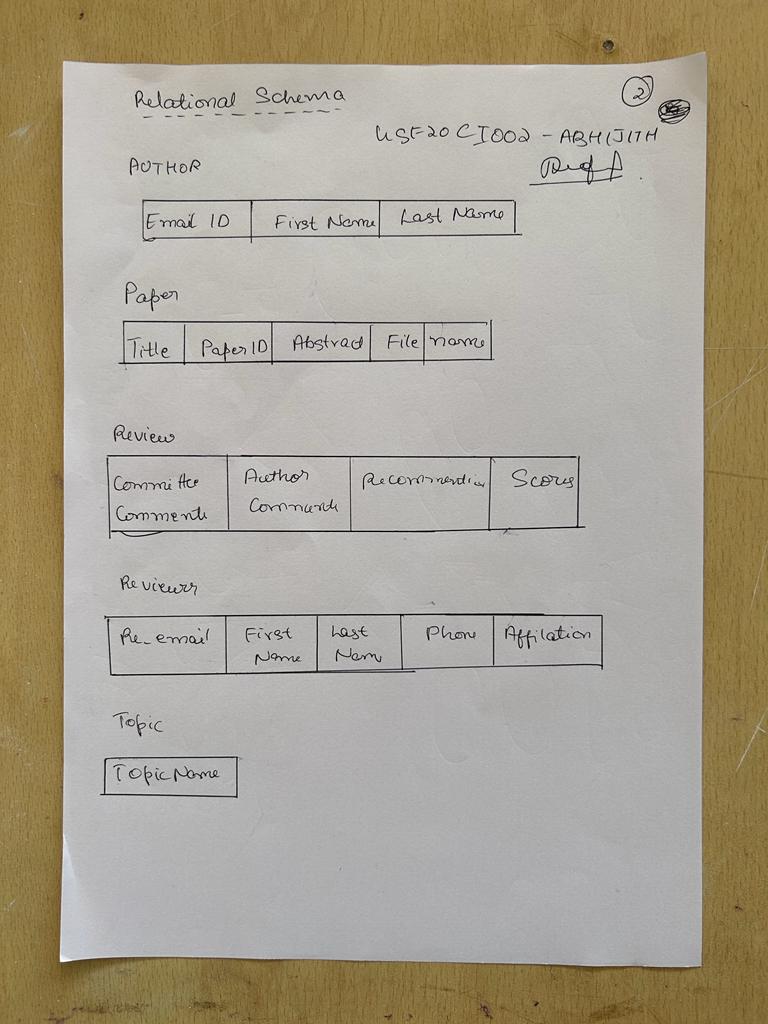 Relational Schema
2
USF20CI002 - ABHIJITH
AUTHOR
Email ID First Name Last Name
Paper
Title PaperID Abstract File name
Review
Committee Comments
Author Comments
Recommendation
Scores
Reviewers
Re_email First Name Last Name Phone Affilation
Topic
TopicName